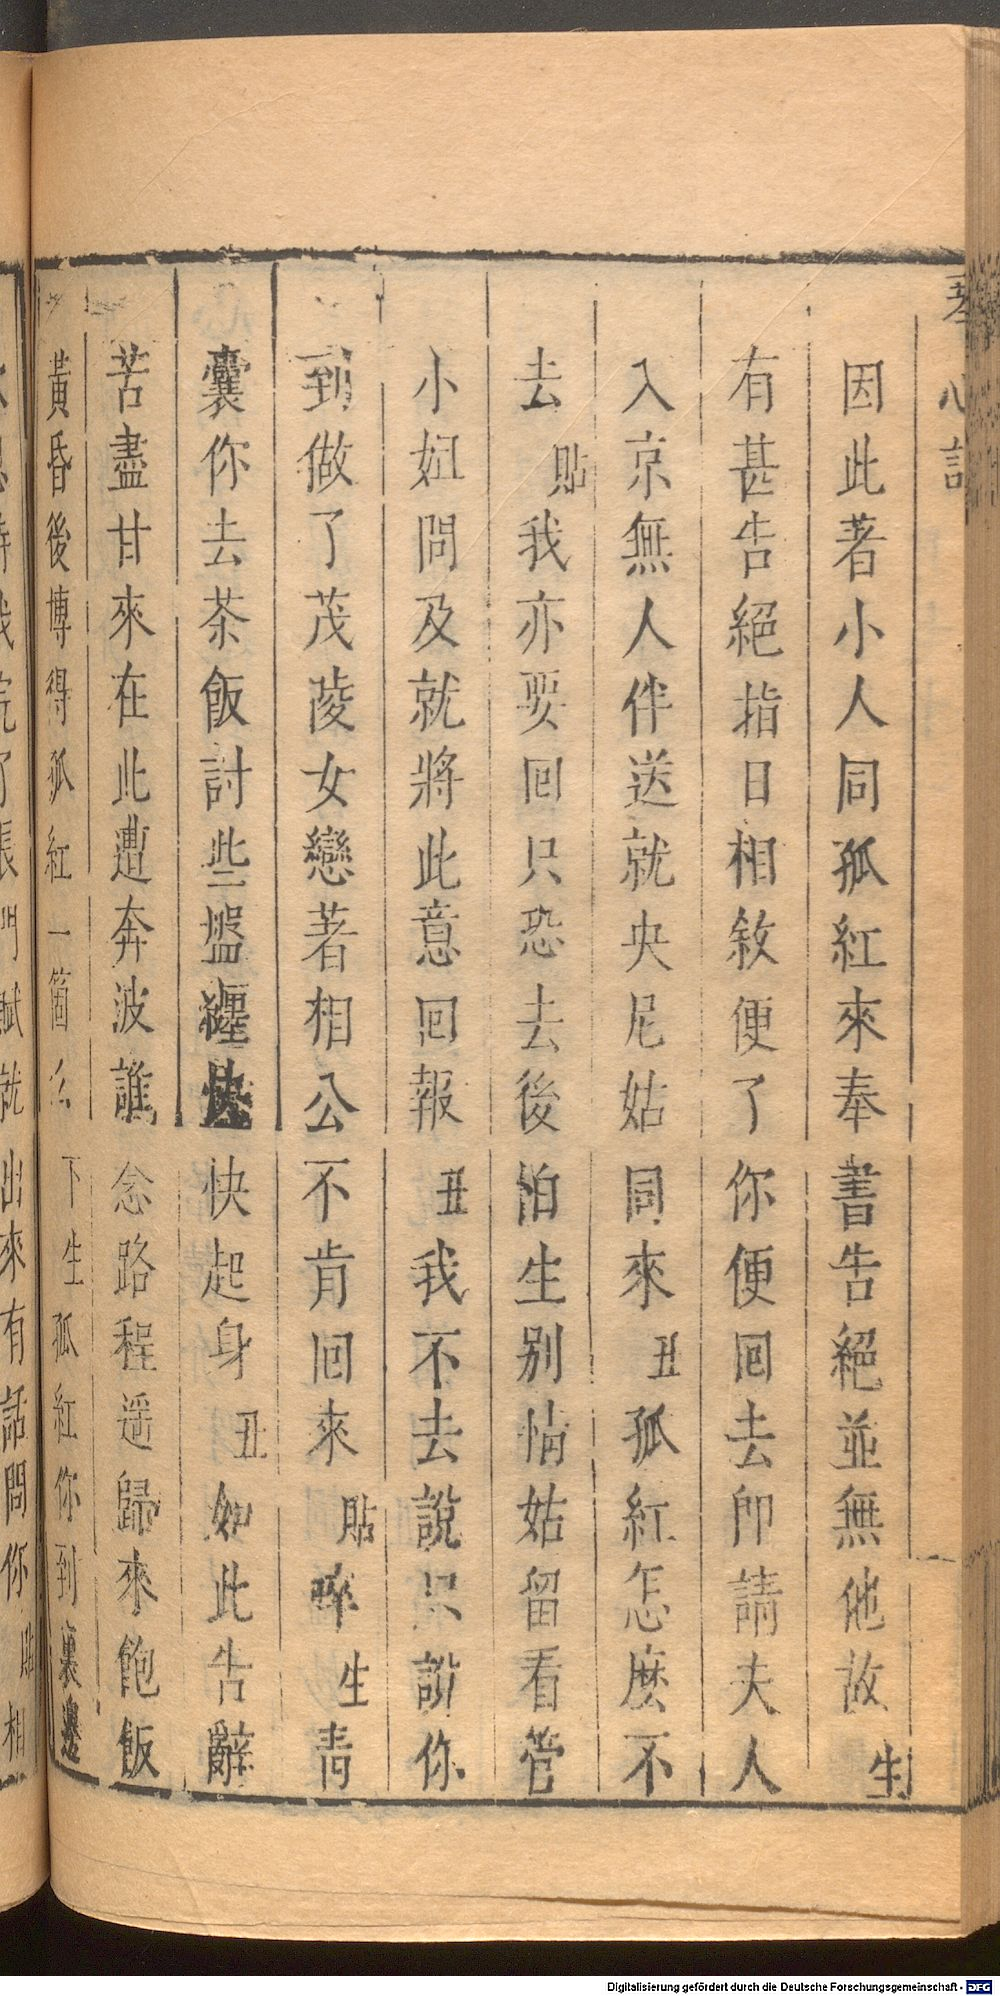 琴心記
因此著小人同孤紅來奉書告絕並無他故生
有甚告絕指日相敘便了你便回去卽請夫人
入京無人伴送就央尼姑同來丑孤紅怎麽不
去貼我亦要回只恐去後怕生別情姑留看管
小姐問及就將此意回報丑我不去說只說你
到做了茂陵女戀著相公不肯回來貼啐生青
囊你去茶飯討些盤纏快快起身丑如此告辭
苦盡甘來在此遭奔波誰念路程遥歸來飽飯
黃昏後博得孤紅一箇么下生孤紅你到裏邊
出來有話問你貼相
Digitalisierung gefördert durch die Deutsche Forschungsgemeinschaft - DFG